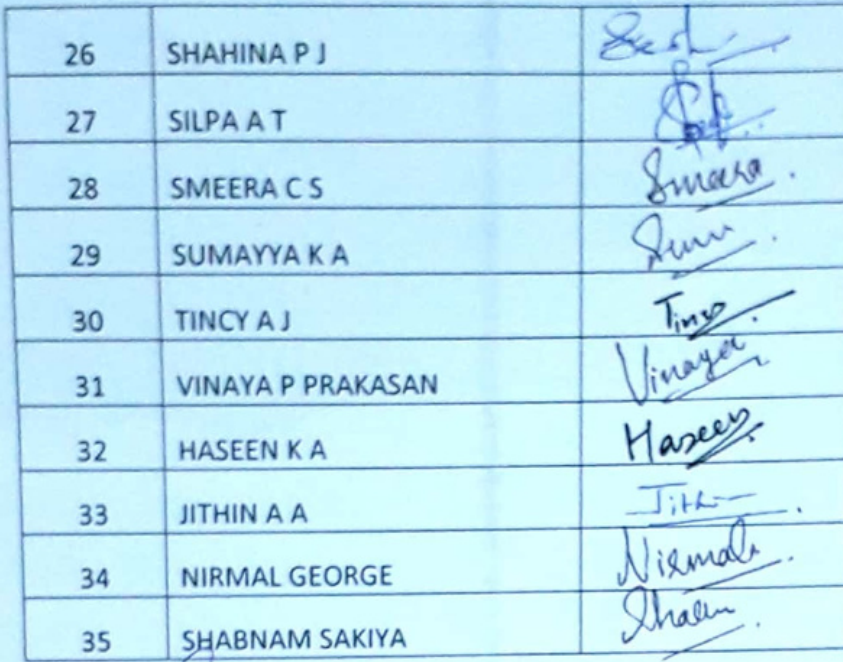 26 SHAHINA P J
27 SILPA A T
28 SMEERA C S Smeera.
29 SUMAYYA K A
30 TINCY A J Tincy
31 VINAYA P PRAKASAN Vinaya
32 HASEEN K A Haseen
33 JITHIN A A Jithin
34 NIRMAL GEORGE Nirmal
35 SHABNAM SAKIYA